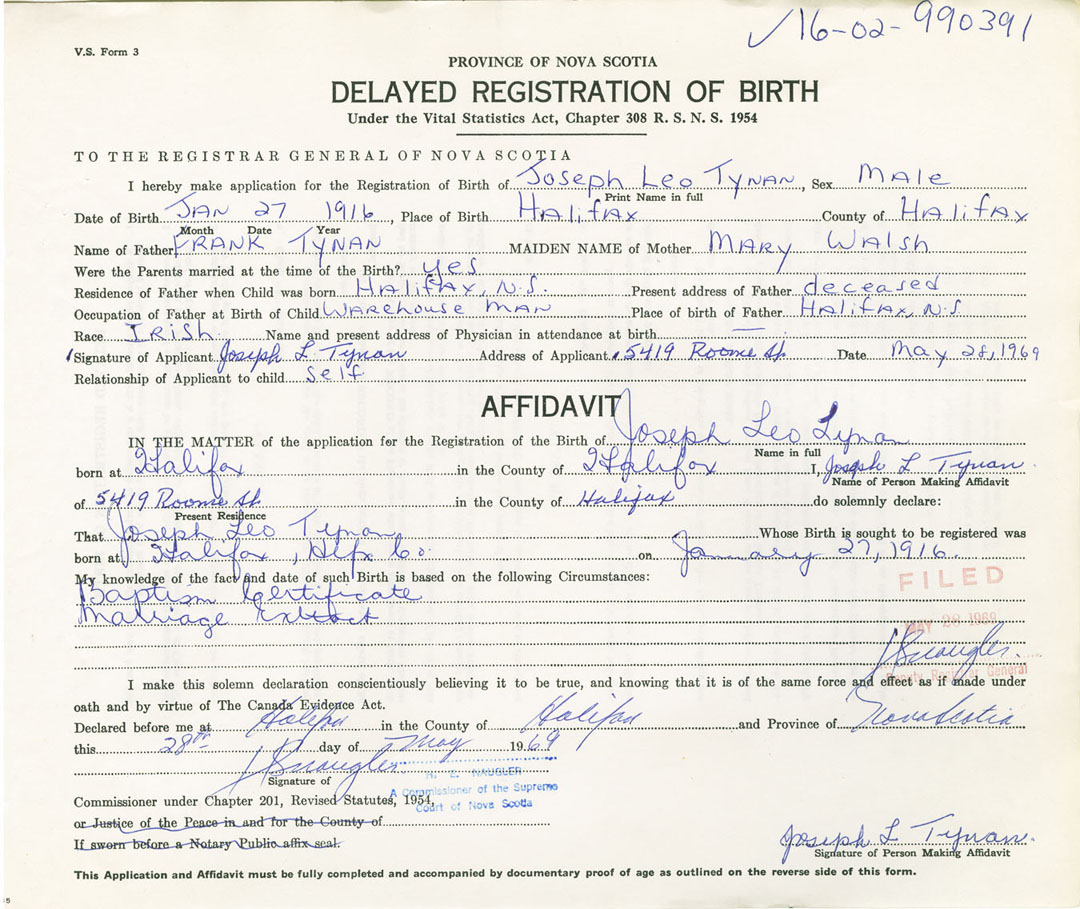 16-02-990391
V.S. Form 3
PROVINCE OF NOVA SCOTIA
DELAYED REGISTRATION OF BIRTH
Under the Vital Statistics Act, Chapter 308 R. S. N. S. 1954
TO THE REGISTRAR GENERAL OF NOVA SCOTIA
I hereby make application for the Registration of Birth of Joseph Leo Tynan, Sex Male
Print Name in full
Date of Birth Jan 27 1916, Place of Birth Halifax County of Halifax
Month Date Year
Name of Father Frank Tynan MAIDEN NAME of Mother Mary Walsh
Were the Parents married at the time of the Birth? yes
Residence of Father when Child was born Halifax, N.S. Present address of Father deceased
Occupation of Father at Birth of Child Warehouse man Place of birth of Father Halifax, N.S.
Race Irish Name and present address of Physician in attendance at birth —
Signature of Applicant Joseph L Tynan Address of Applicant 5419 Roome St. Date May 28, 1969
Relationship of Applicant to child Self
AFFIDAVIT
IN THE MATTER of the application for the Registration of the Birth of Joseph Leo Tynan
Name in full
born at Halifax in the County of Halifax I, Joseph L Tynan
Name of Person Making Affidavit
of 5419 Roome St. in the County of Halifax do solemnly declare:
Present Residence
That Joseph Leo Tynan Whose Birth is sought to be registered was
born at Halifax, Hfx Co. on January 27, 1916.
My knowledge of the fact and date of such Birth is based on the following Circumstances:
Baptism Certificate
Marriage Extract
FILED
MAY 28 1969
Deputy Registrar General
I make this solemn declaration conscientiously believing it to be true, and knowing that it is of the same force and effect as if made under
oath and by virtue of The Canada Evidence Act.
Declared before me at Halifax in the County of Halifax and Province of Nova Scotia
this 28th day of May 1969
Signature of
H. E. NAUGLER
A Commissioner of the Supreme
Court of Nova Scotia
Commissioner under Chapter 201, Revised Statutes, 1954,
or Justice of the Peace in and for the County of
If sworn before a Notary Public affix seal.
Joseph L Tynan.
Signature of Person Making Affidavit
This Application and Affidavit must be fully completed and accompanied by documentary proof of age as outlined on the reverse side of this form.